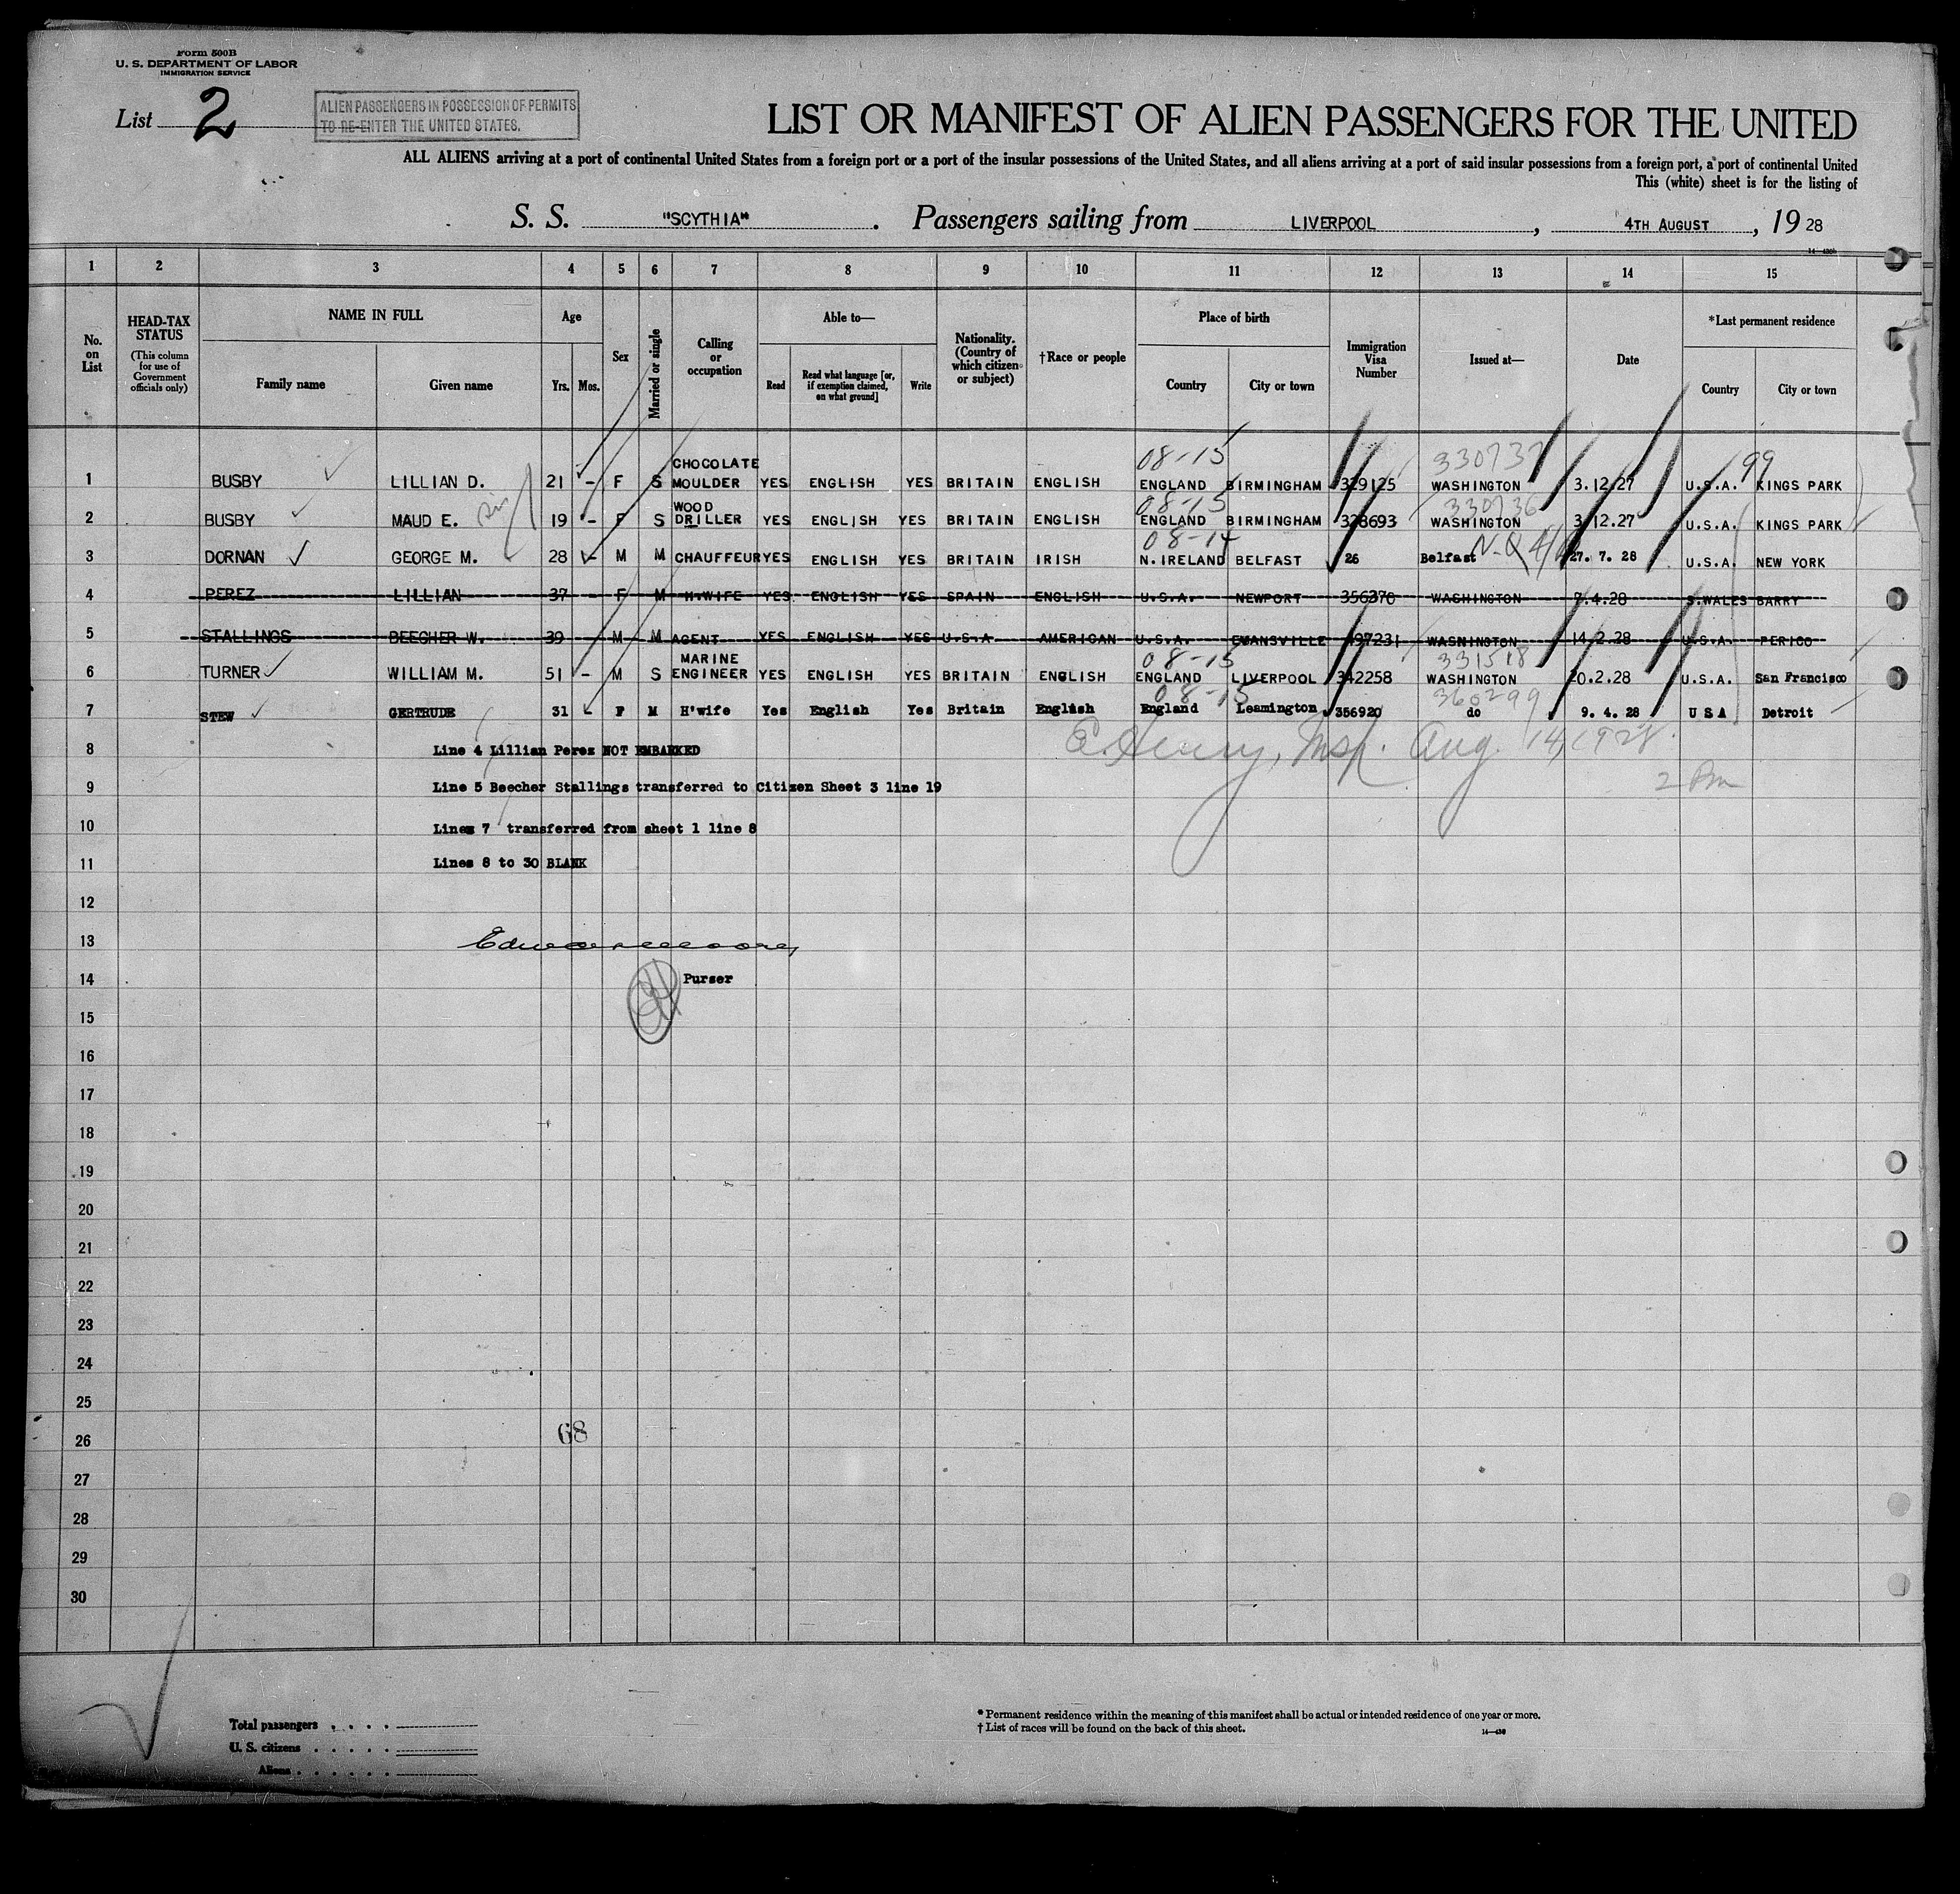 Form 500B
U. S. DEPARTMENT OF LABOR
IMMIGRATION SERVICE
List 2
ALIEN PASSENGERS IN POSSESSION OF PERMITS
TO RE-ENTER THE UNITED STATES.
LIST OR MANIFEST OF ALIEN PASSENGERS FOR THE UNITED
ALL ALIENS arriving at a port of continental United States from a foreign port or a port of the insular possessions of the United States, and all aliens arriving at a port of said insular possessions from a foreign port, a port of continental United
This (white) sheet is for the listing of
S. S. "SCYTHIA". Passengers sailing from LIVERPOOL, 4TH AUGUST, 1928
1 2 3 4 5 6 7 8 9 10 11 12 13 14 15
No. on List
HEAD-TAX STATUS
(This column for use of Government officials only)
NAME IN FULL
Family name Given name
Age
Yrs. Mos.
Sex
Married or single
Calling or occupation
Able to—
Read
Read what language [or, if exemption claimed, on what ground]
Write
Nationality. (Country of which citizen or subject)
†Race or people
Place of birth
Country City or town
Immigration Visa Number
Issued at—
Date
*Last permanent residence
Country City or town
08-15 99
1 BUSBY LILLIAN D. 21 - F S CHOCOLATE MOULDER YES ENGLISH YES BRITAIN ENGLISH ENGLAND BIRMINGHAM 329125 WASHINGTON 3.12.27 U.S.A. KINGS PARK
08-15 330736
2 BUSBY MAUD E. 19 - F S WOOD DRILLER YES ENGLISH YES BRITAIN ENGLISH ENGLAND BIRMINGHAM 328693 WASHINGTON 3.12.27 U.S.A. KINGS PARK
08-14
3 DORNAN GEORGE M. 28 - M M CHAUFFEUR YES ENGLISH YES BRITAIN IRISH N.IRELAND BELFAST 26 Belfast 27. 7. 28 U.S.A. NEW YORK
4 PEREZ LILLIAN 37 - F M H.WIFE YES ENGLISH YES SPAIN ENGLISH U.S.A. NEWPORT 356370 WASHINGTON 7.4.28 S.WALES BARRY
5 STALLINGS BEECHER W. 39 M M AGENT YES ENGLISH YES U.S.A AMERICAN U.S.A. EVANSVILLE WASHINGTON 14.2.28 U.S.A. PERICO
08-15 331518
6 TURNER WILLIAM M. 51 - M S MARINE ENGINEER YES ENGLISH YES BRITAIN ENGLISH ENGLAND LIVERPOOL 342258 WASHINGTON 20.2.28 U.S.A. San Francisco
08-15 360299
7 STEW GERTRUDE 31 F M H'wife Yes English Yes Britain English England Leamington 356920 do 9. 4. 28 U S A Detroit
8 Line 4 Lillian Perez NOT EMBARKED
E. Henry, Insp. Aug. 14, 1928.
2 Pm
9 Line 5 Beecher Stallings transferred to Citizen Sheet 3 line 19
10 Lines 7 transferred from sheet 1 line 8
11 Lines 8 to 30 BLANK
12
13
14 Purser
15
16
17
18
19
20
21
22
23
24
25
26 68
27
28
29
30
Total passengers . . . .
U. S. citizens . . . . .
Aliens . . . . . .
* Permanent residence within the meaning of this manifest shall be actual or intended residence of one year or more.
† List of races will be found on the back of this sheet.
14—430